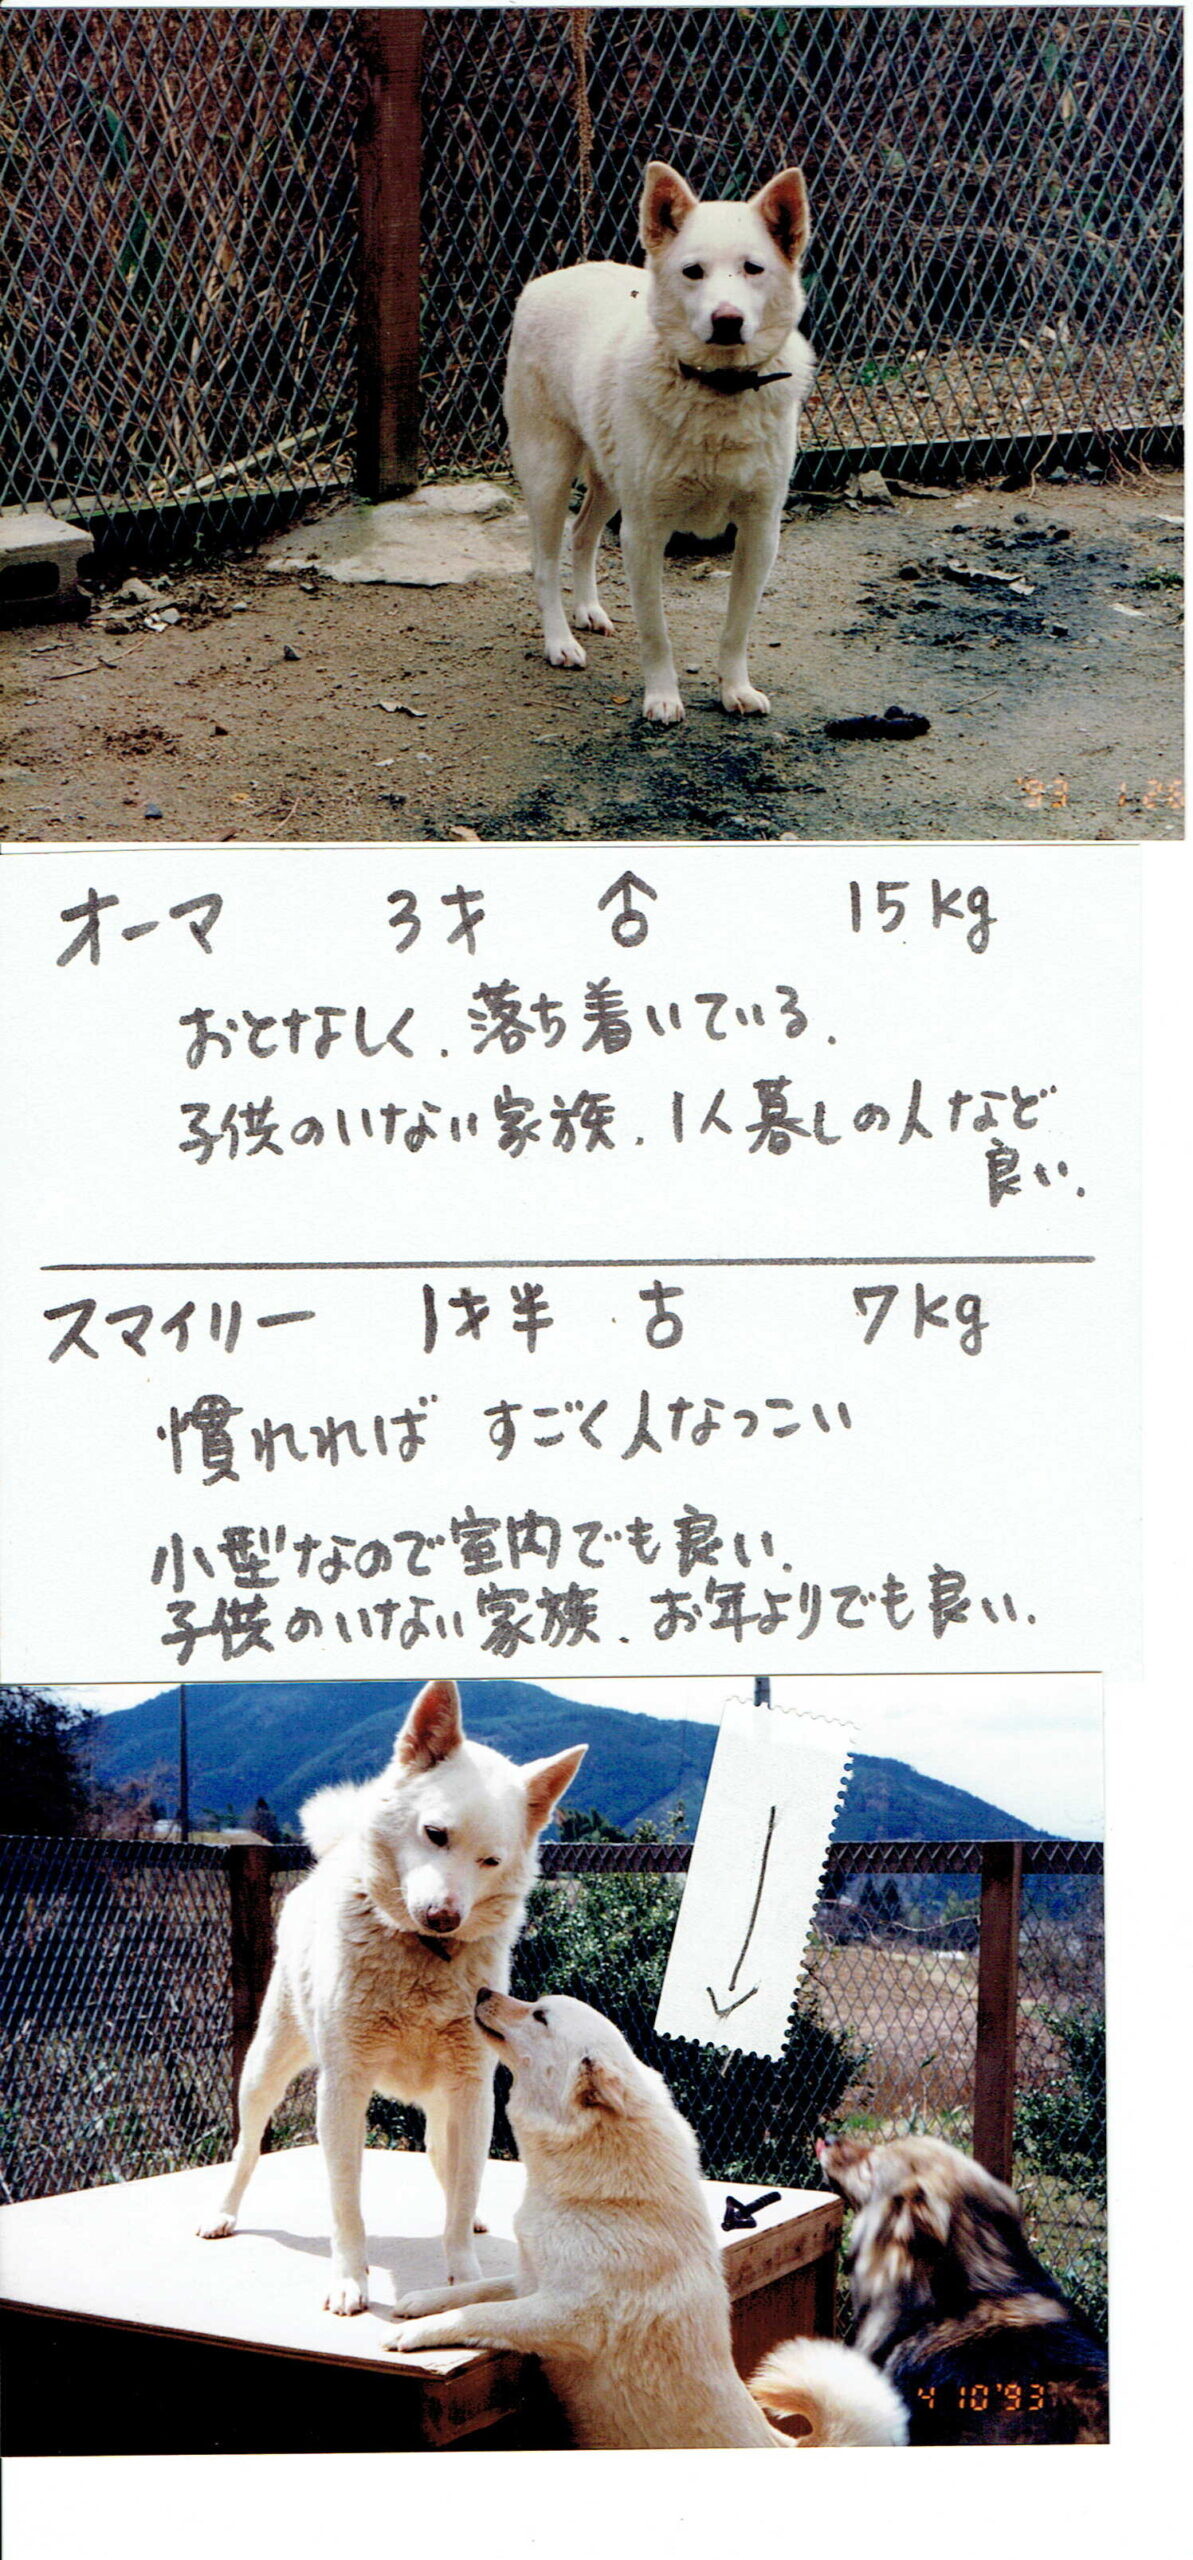 '93 1.26
オーマ 3才 ♂ 15kg
おとなしく、落ち着いている。
子供のいない家族、1人暮しの人など
良い。
スマイリー 1才半 ♂ 7kg
慣れれば すごく人なつこい
小型なので室内でも良い。
子供のいない家族、お年よりでも良い。
4 10 '93